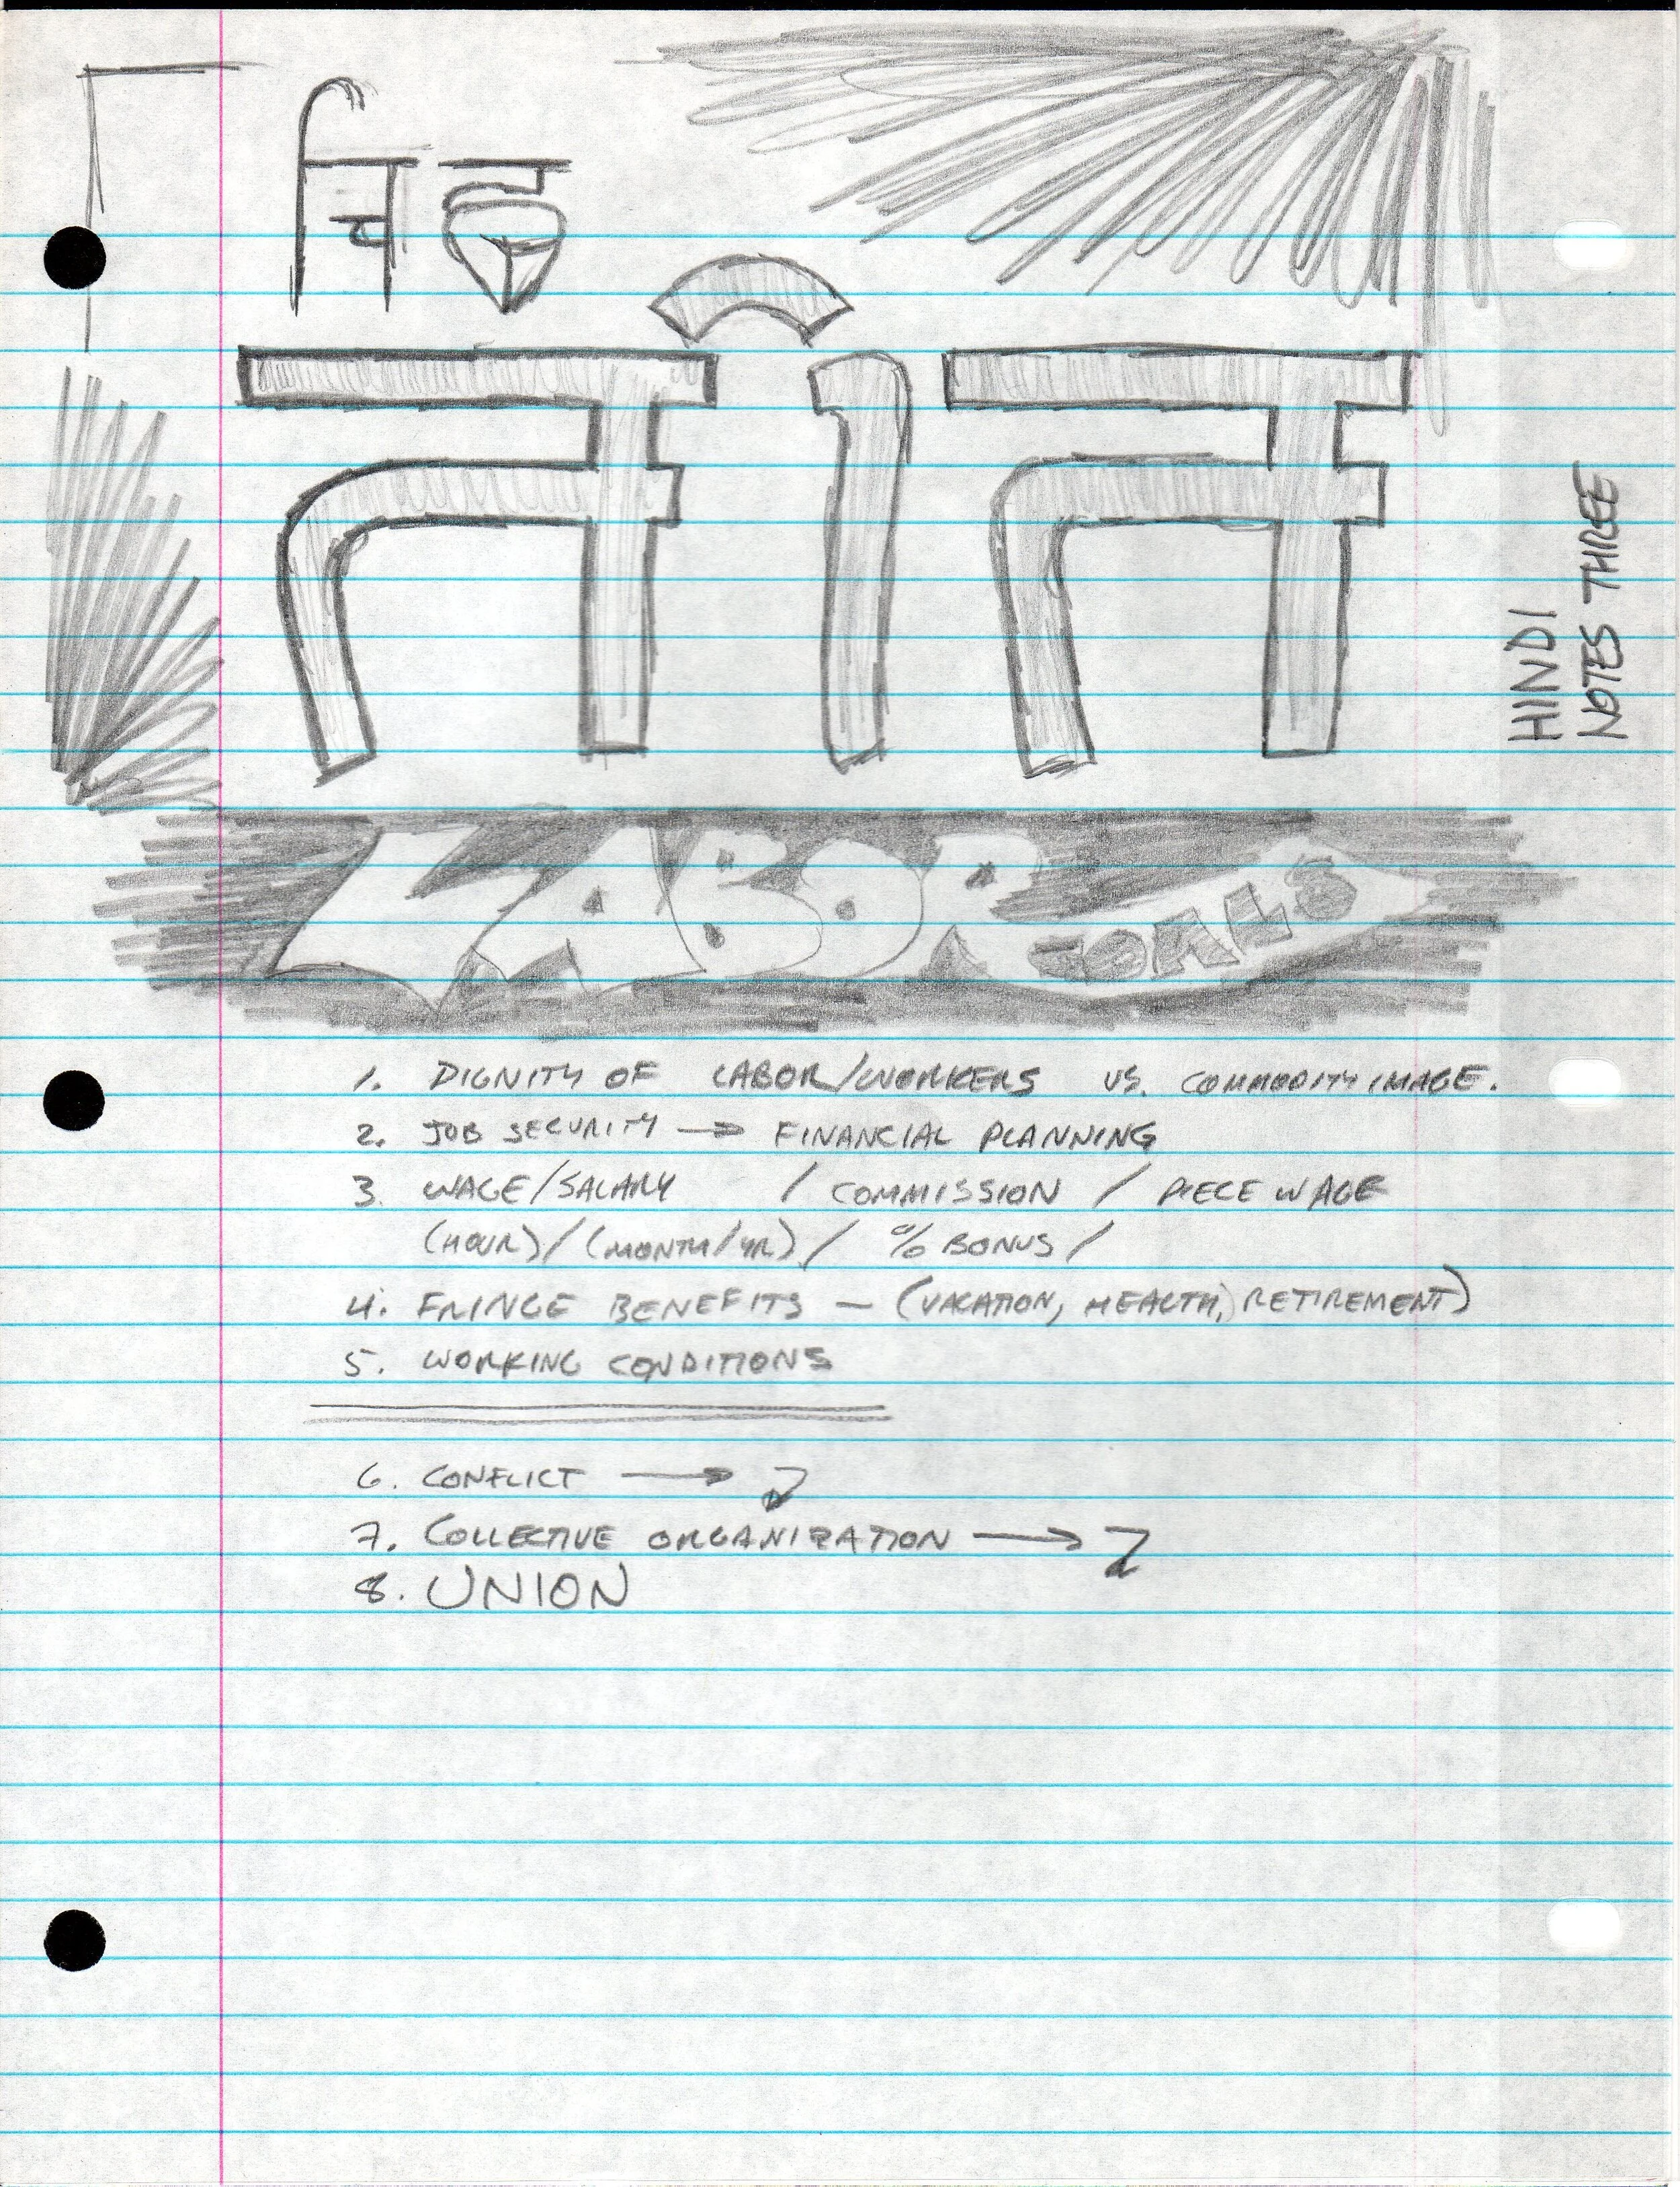 HINDI
NOTES THREE
LABOR GOALS
1. DIGNITY OF LABOR/WORKERS VS. COMMODITY IMAGE.
2. JOB SECURITY → FINANCIAL PLANNING
3. WAGE/SALARY / COMMISSION / PIECE WAGE
(HOUR)/(MONTH/YR) / % BONUS /
4. FRINGE BENEFITS — (VACATION, HEALTH, RETIREMENT)
5. WORKING CONDITIONS
6. CONFLICT →
7. COLLECTIVE ORGANIZATION →
8. UNION